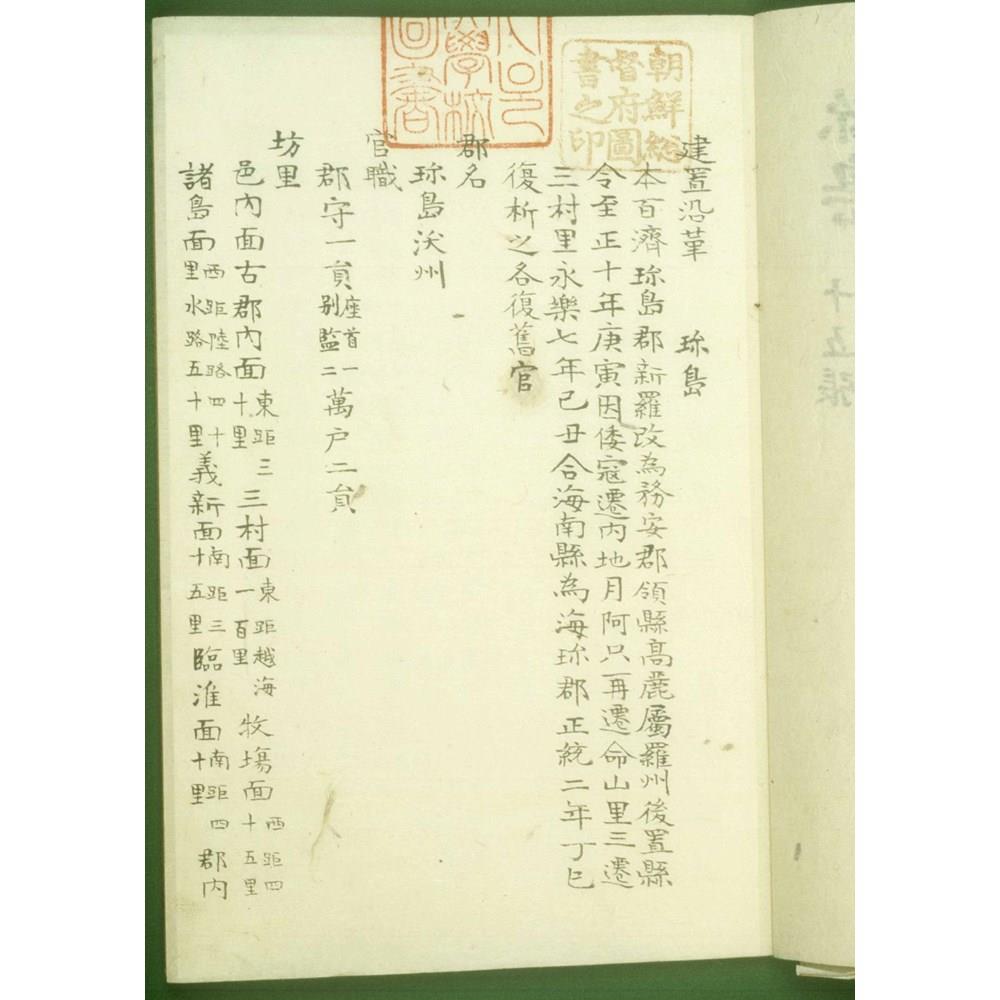 建置沿革 珎島
本百濟珎島郡新羅改為務安郡領縣高麗屬羅州後置縣
令至正十年庚寅因倭寇遷內地月阿只再遷命山里三遷
三村里永樂七年己丑合海南縣為海珎郡正統二年丁巳
復析之各復舊官
郡名
珎島沃州
官職
郡守一員座首一別監二萬户二員
坊里
邑內面古郡內面東距三十里三村面東距越海一百里牧塲面西距四十五里
諸島面西距陸路四十里水路五十里義新面南距三十五里臨淮面南距四十里郡內
朝鮮総
督府圖
書之印
學校
圖書